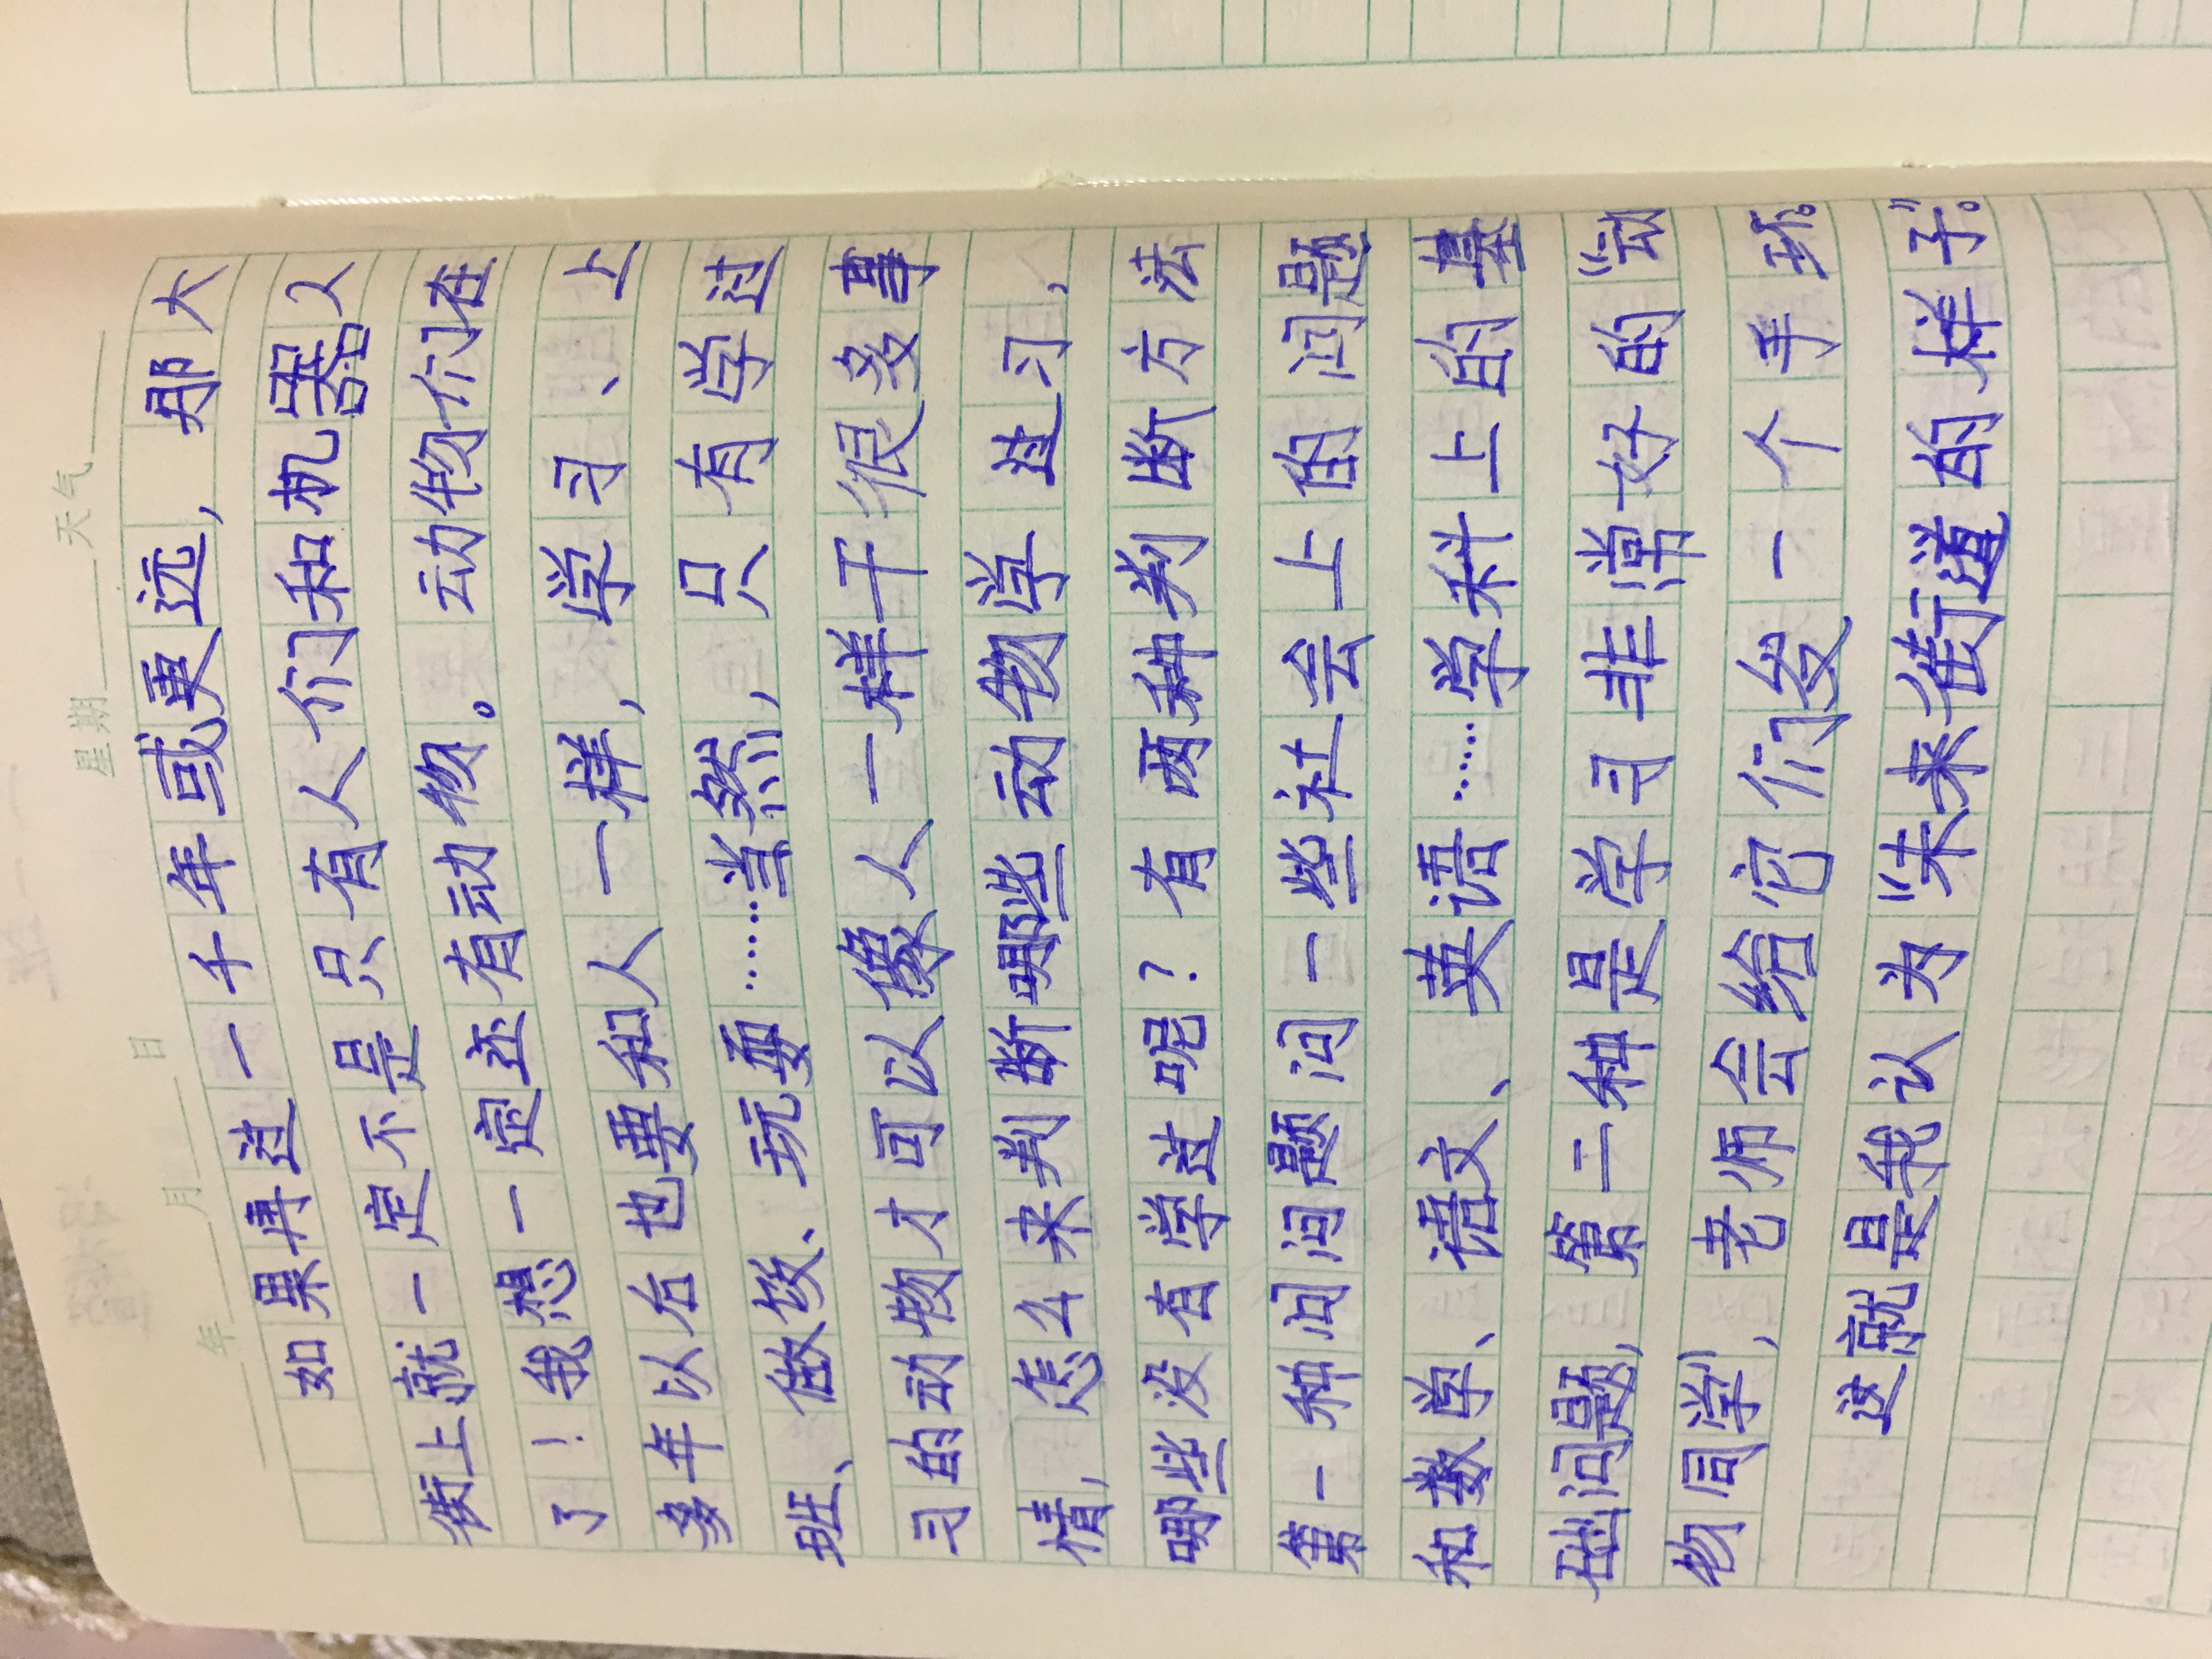 年 月 日 星期 天气
如果再过一千年或更远，那大
街上就一定不是只有人们和机器人
了！我想一定还有动物。动物们在
多年以后也要和人一样，学习、上
班、做饭、玩耍……当然，只有学过
习的动物才可以像人一样干很多事
情，怎么来判断哪些动物学过习，
哪些没有学过呢？有两种判断方法
第一种问问题问一些社会上的问题
和数学、语文、英语……学科上的基
础问题，第二种是学习非常好的“动
物同学”，老师会给它们发一个手环。
这就是我认为“未来街道的样子”。